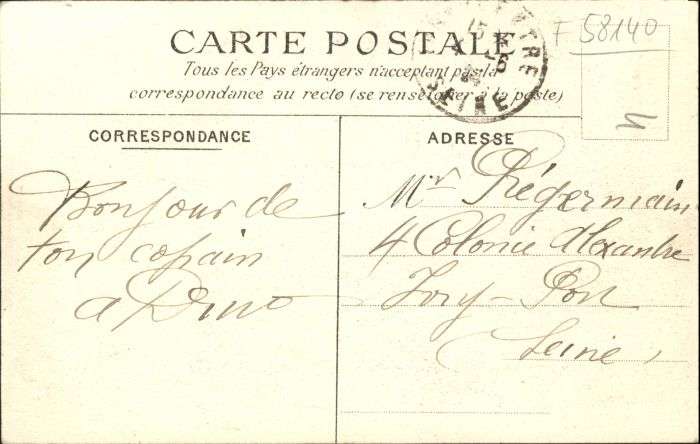 CARTE POSTALE
Tous les Pays étrangers n'acceptant pas la
correspondance au recto (se renseigner à la poste)
F 58140
SEINE
CORRESPONDANCE
Bonjour de
ton copain
a
ADRESSE
Mr Régermain
4 Colonie Alexandre
Ivry-Port
Seine